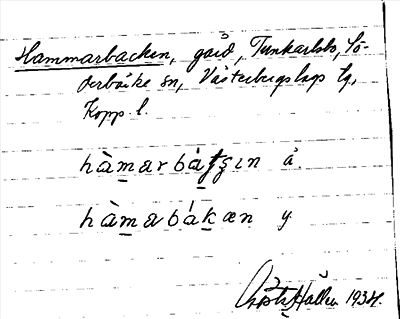 Hammarbacken, gård, Tunkarlsbo, Sö-
derbärke sn, Västerbergslags tg,
Kopp. l.
hàmarbátʂın ä.
hàmabákæn y
Gösta Hallén 1934.